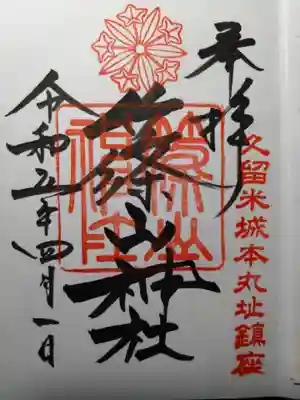 奉拝
久留米城本丸址鎮座
篠山神社
令和五年四月一日